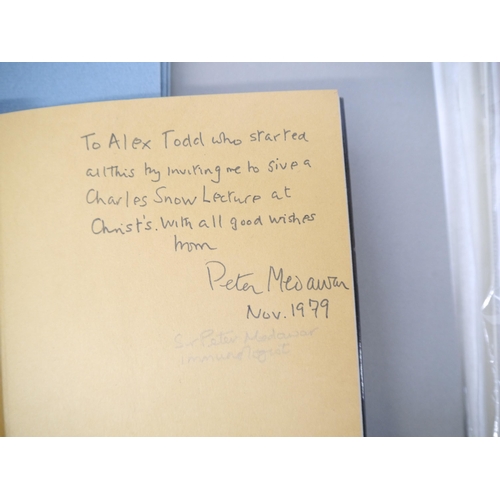 To Alex Todd who started
all This by Inviting me to give a
Charles Snow Lecture at
Christ's. With all good wishes
from
Peter Medawar
Nov. 1979
Sir Peter Medawar
immunologist